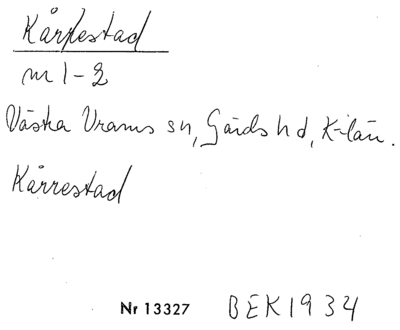 Kårrestad
m 1-2
Västra Vrams sn, Gärds hd, K-län.
Kårrestad
Nr 13327 BEK 1934